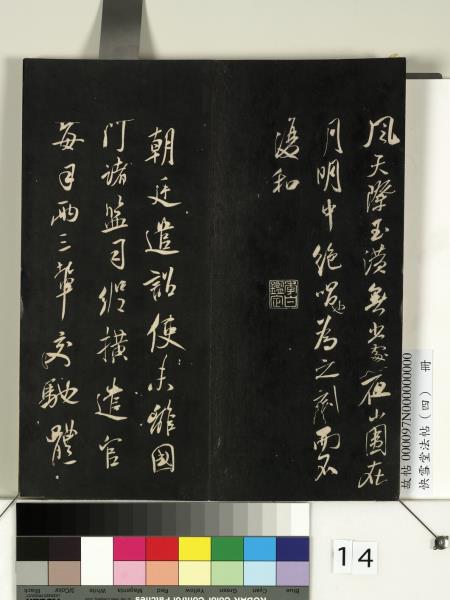 風天降玉漢無夜山圍在
月明中絕唱為之而不
復和
朝廷遣詔使未離國
門諸監司縱橫遣官
每兩三輩交馳體
故帖 000097N000000000
快雪堂法帖（四） 冊
14
Blue Cyan Green Yellow Red Magenta White 3/Color Black
KODAK Color Control Patches